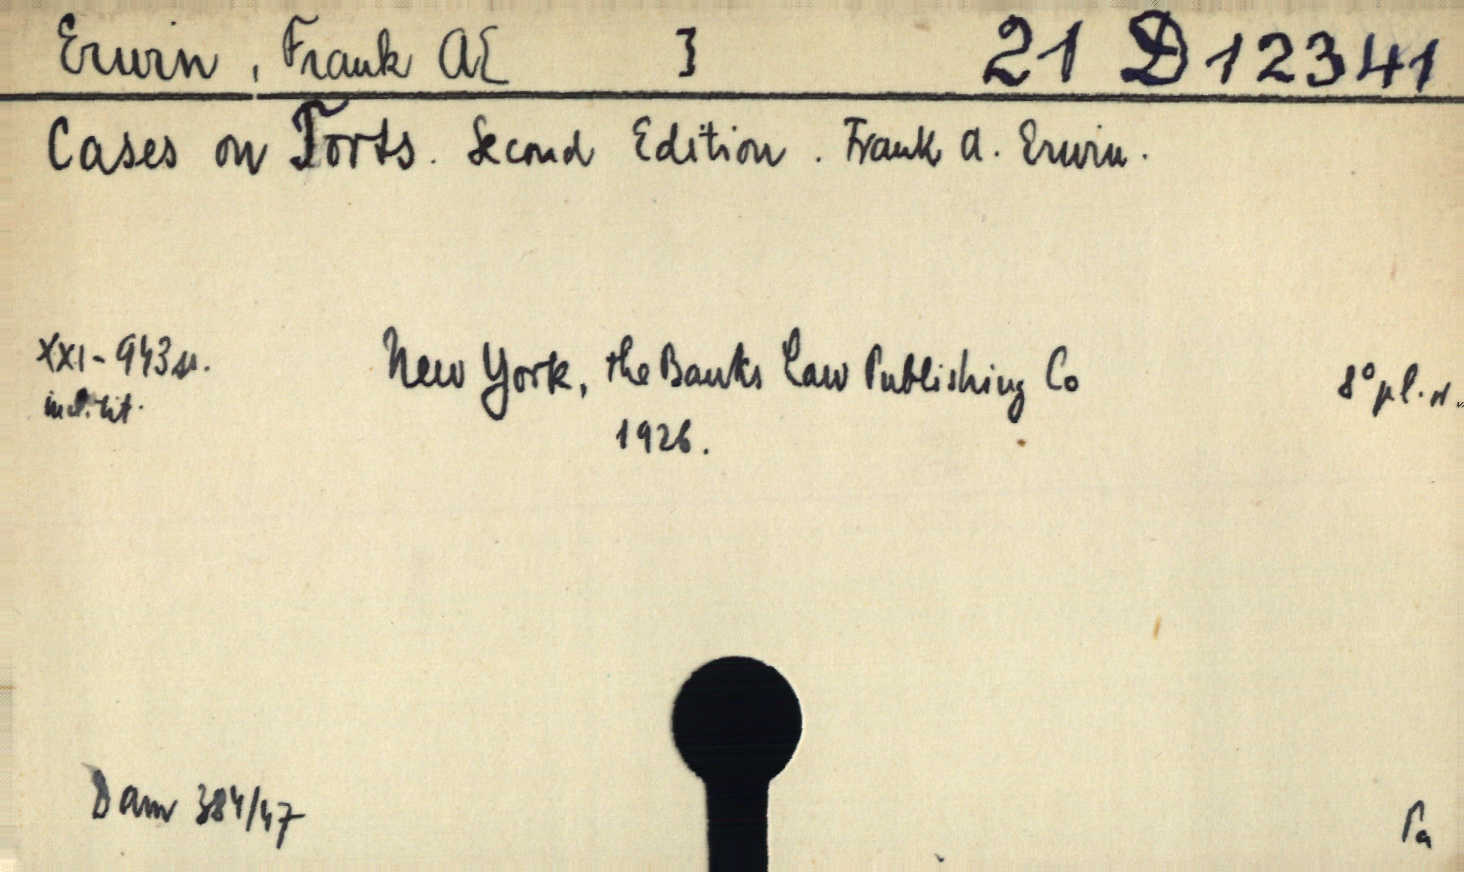 Erwin, Frank A[ ] 21 D 12341
Cases on Torts. Second Edition. Frank A. Erwin.
XXI-943 s. New York, the Banks Law Publishing Co 8° pl.
1926.
Dar 384/47 Pa